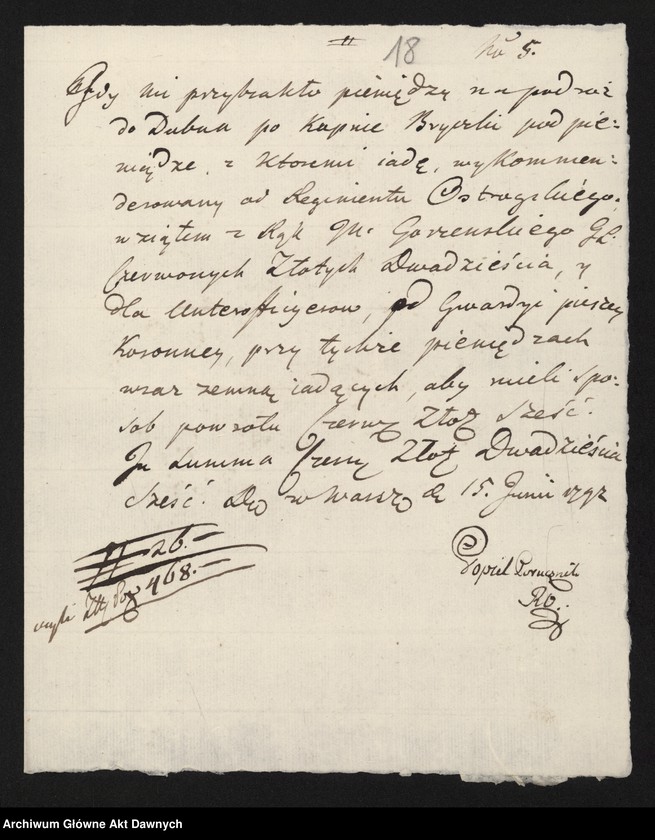 18 No 5.
Gdy mi przybrakło pieniędzy na podroż
do Dubna po Kupnie Bryczki pod pie-
niądze, z ktoremi iadę, wykommen-
derowany od Regimentu Ostrogskiego,
wziąłem z Rąk Gorzenskiego
Czerwonych Złotych Dwadzieścia, y
dla Unterofficerow, od Gwardyi pieszey
Koronney, przy tychże pieniędzach
wraz zemną iadących, aby mieli spo-
sob powrotu Czerw Złot Sześć.
In Summa Czerw Złot Dwadzieścia
Sześć. w Warsz 15. Junii 1792
26.-
czyli Złł Pol 468.-
Popiel Porucznik
Archiwum Główne Akt Dawnych